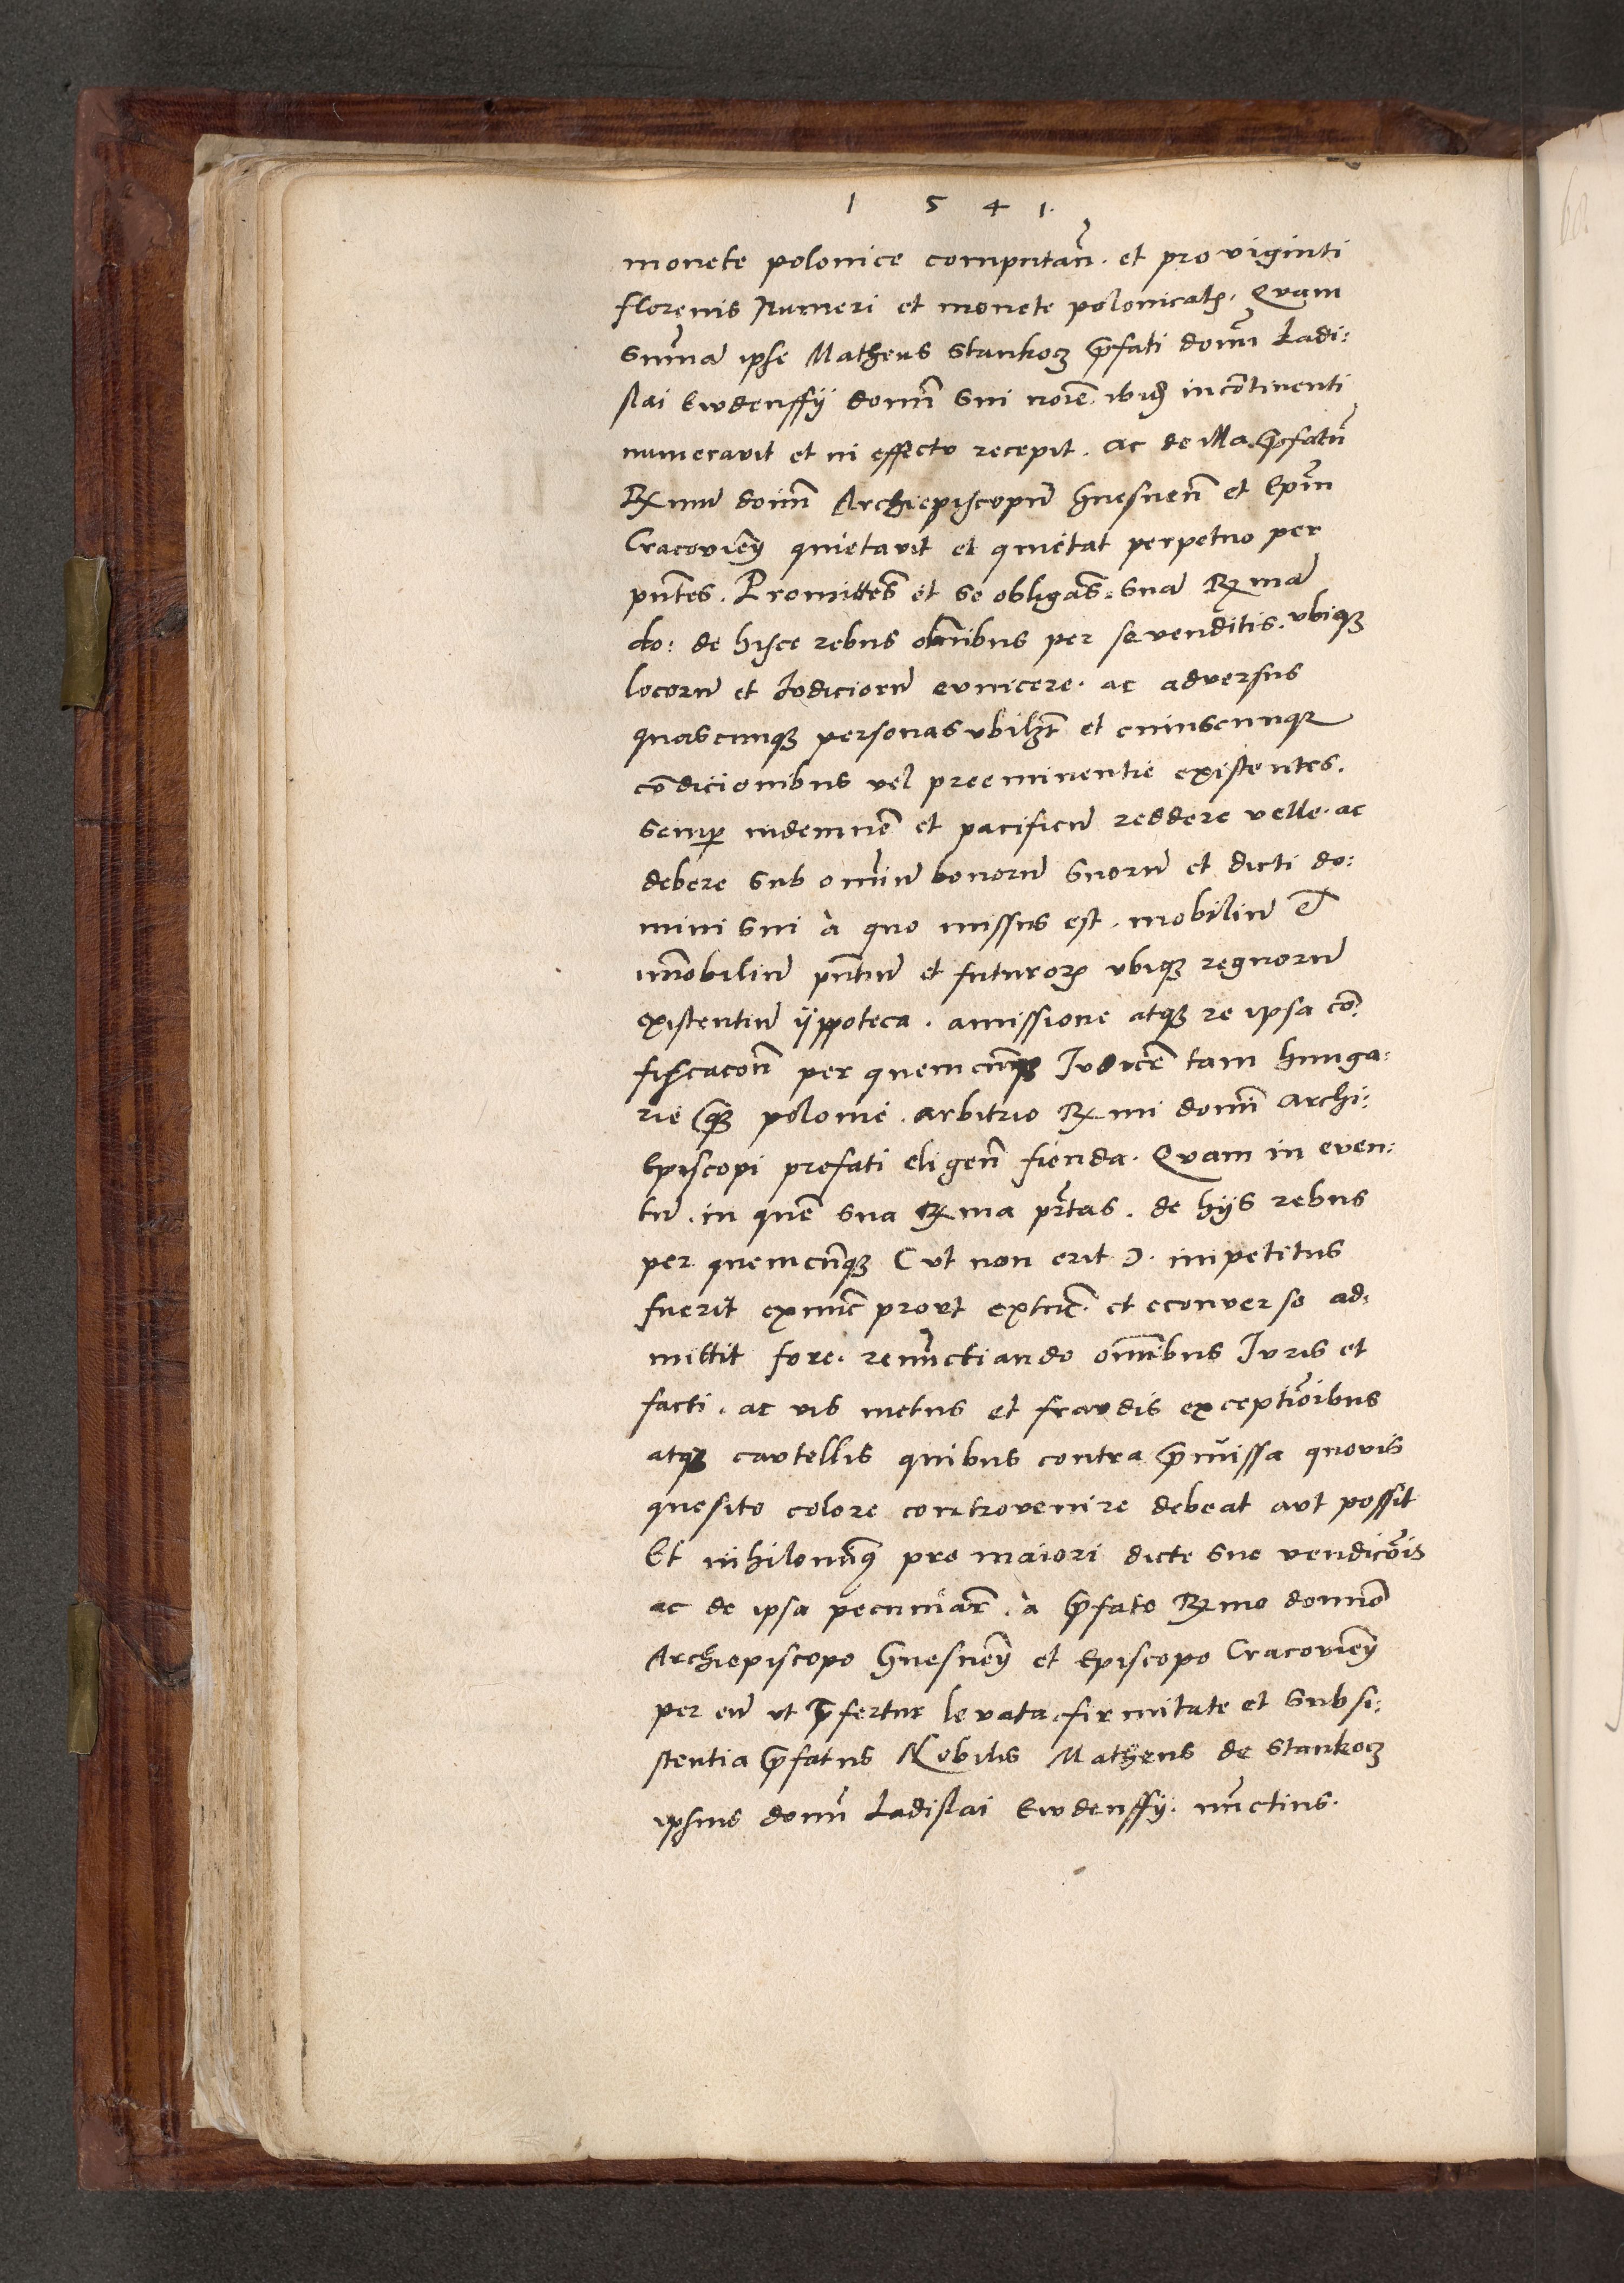 1 5 4 1.
monete polonice computañ. et pro viginti
florenis Numeri et monete polonicalꝭ. Quam
sum̃a ipse Matheus Stankocz p̃fati domĩ Ladi:
slai Ewdenffij domĩ sui noĩe. ibidẽ incõtinenti
numeravit et in effectu recepit. ac de illa p̃fatũ
Rx̃mũ domĩ Archiepiscopũ Gnesneñ et Ep̃m
Cracovieñ quietavit et quietat perpetuo per
pñtes. Promittẽs et se obligãs. suã Rx̃mã
do: de hisce rebus omnibus per se venditis. ubiqꝫ
locorũ et Iudiciorũ evnicere. ac adversus
quascunqꝫ personas ubilꝫt et cuiuscunqꝫ
cõdicionibus vel preeminentie existentes.
semꝑ indemnẽ et pacificũ reddere velle. ac
debere sub omniũ bonorũ suorũ et dicti do:
mini sui à quo missus est. mobiliũ et
im̃obiliũ pñtiũ et futuroꝝ ubiqꝫ regnorũ
existentiũ ijppoteca. amissione atqꝫ re ipsa cõ:
fiscacoñ per quemcũqꝫ Iudicẽ tam hunga:
rie qꝫ polonie. arbitrio Rx̃mi domĩ archi:
Episcopi prefati eligeñ fienda. Quam in even:
tũ. in quẽ sua Rx̃ma pr̃tas. de hijs rebus
per quemcũqꝫ ( ut non erit ). impetitus
fuerit exnũc prout extũc. et econverso ad:
mittit fore. renũctiando om̃ibus Iuris et
facti. ac vis metus et fraudis exceptiõibus
atqꝫ cautellis quibus contra p̃missa quovis
quesito colore controvenire debeat aut possit
Et nihilominꝰ pro maiori dicte sue vendicõis
ac de ipsa pecuniar̃. à p̃fato Rx̃mo domiõ
Archiepiscopo Gnesneñ et Episcopo Cracovieñ
per eũ ut p̃fertur levata. firmitate et subsi:
stentia p̃fatus Nobilis Matheus de Stankocz
ipsius domĩ Ladislai Ewdenffij. nũctius.